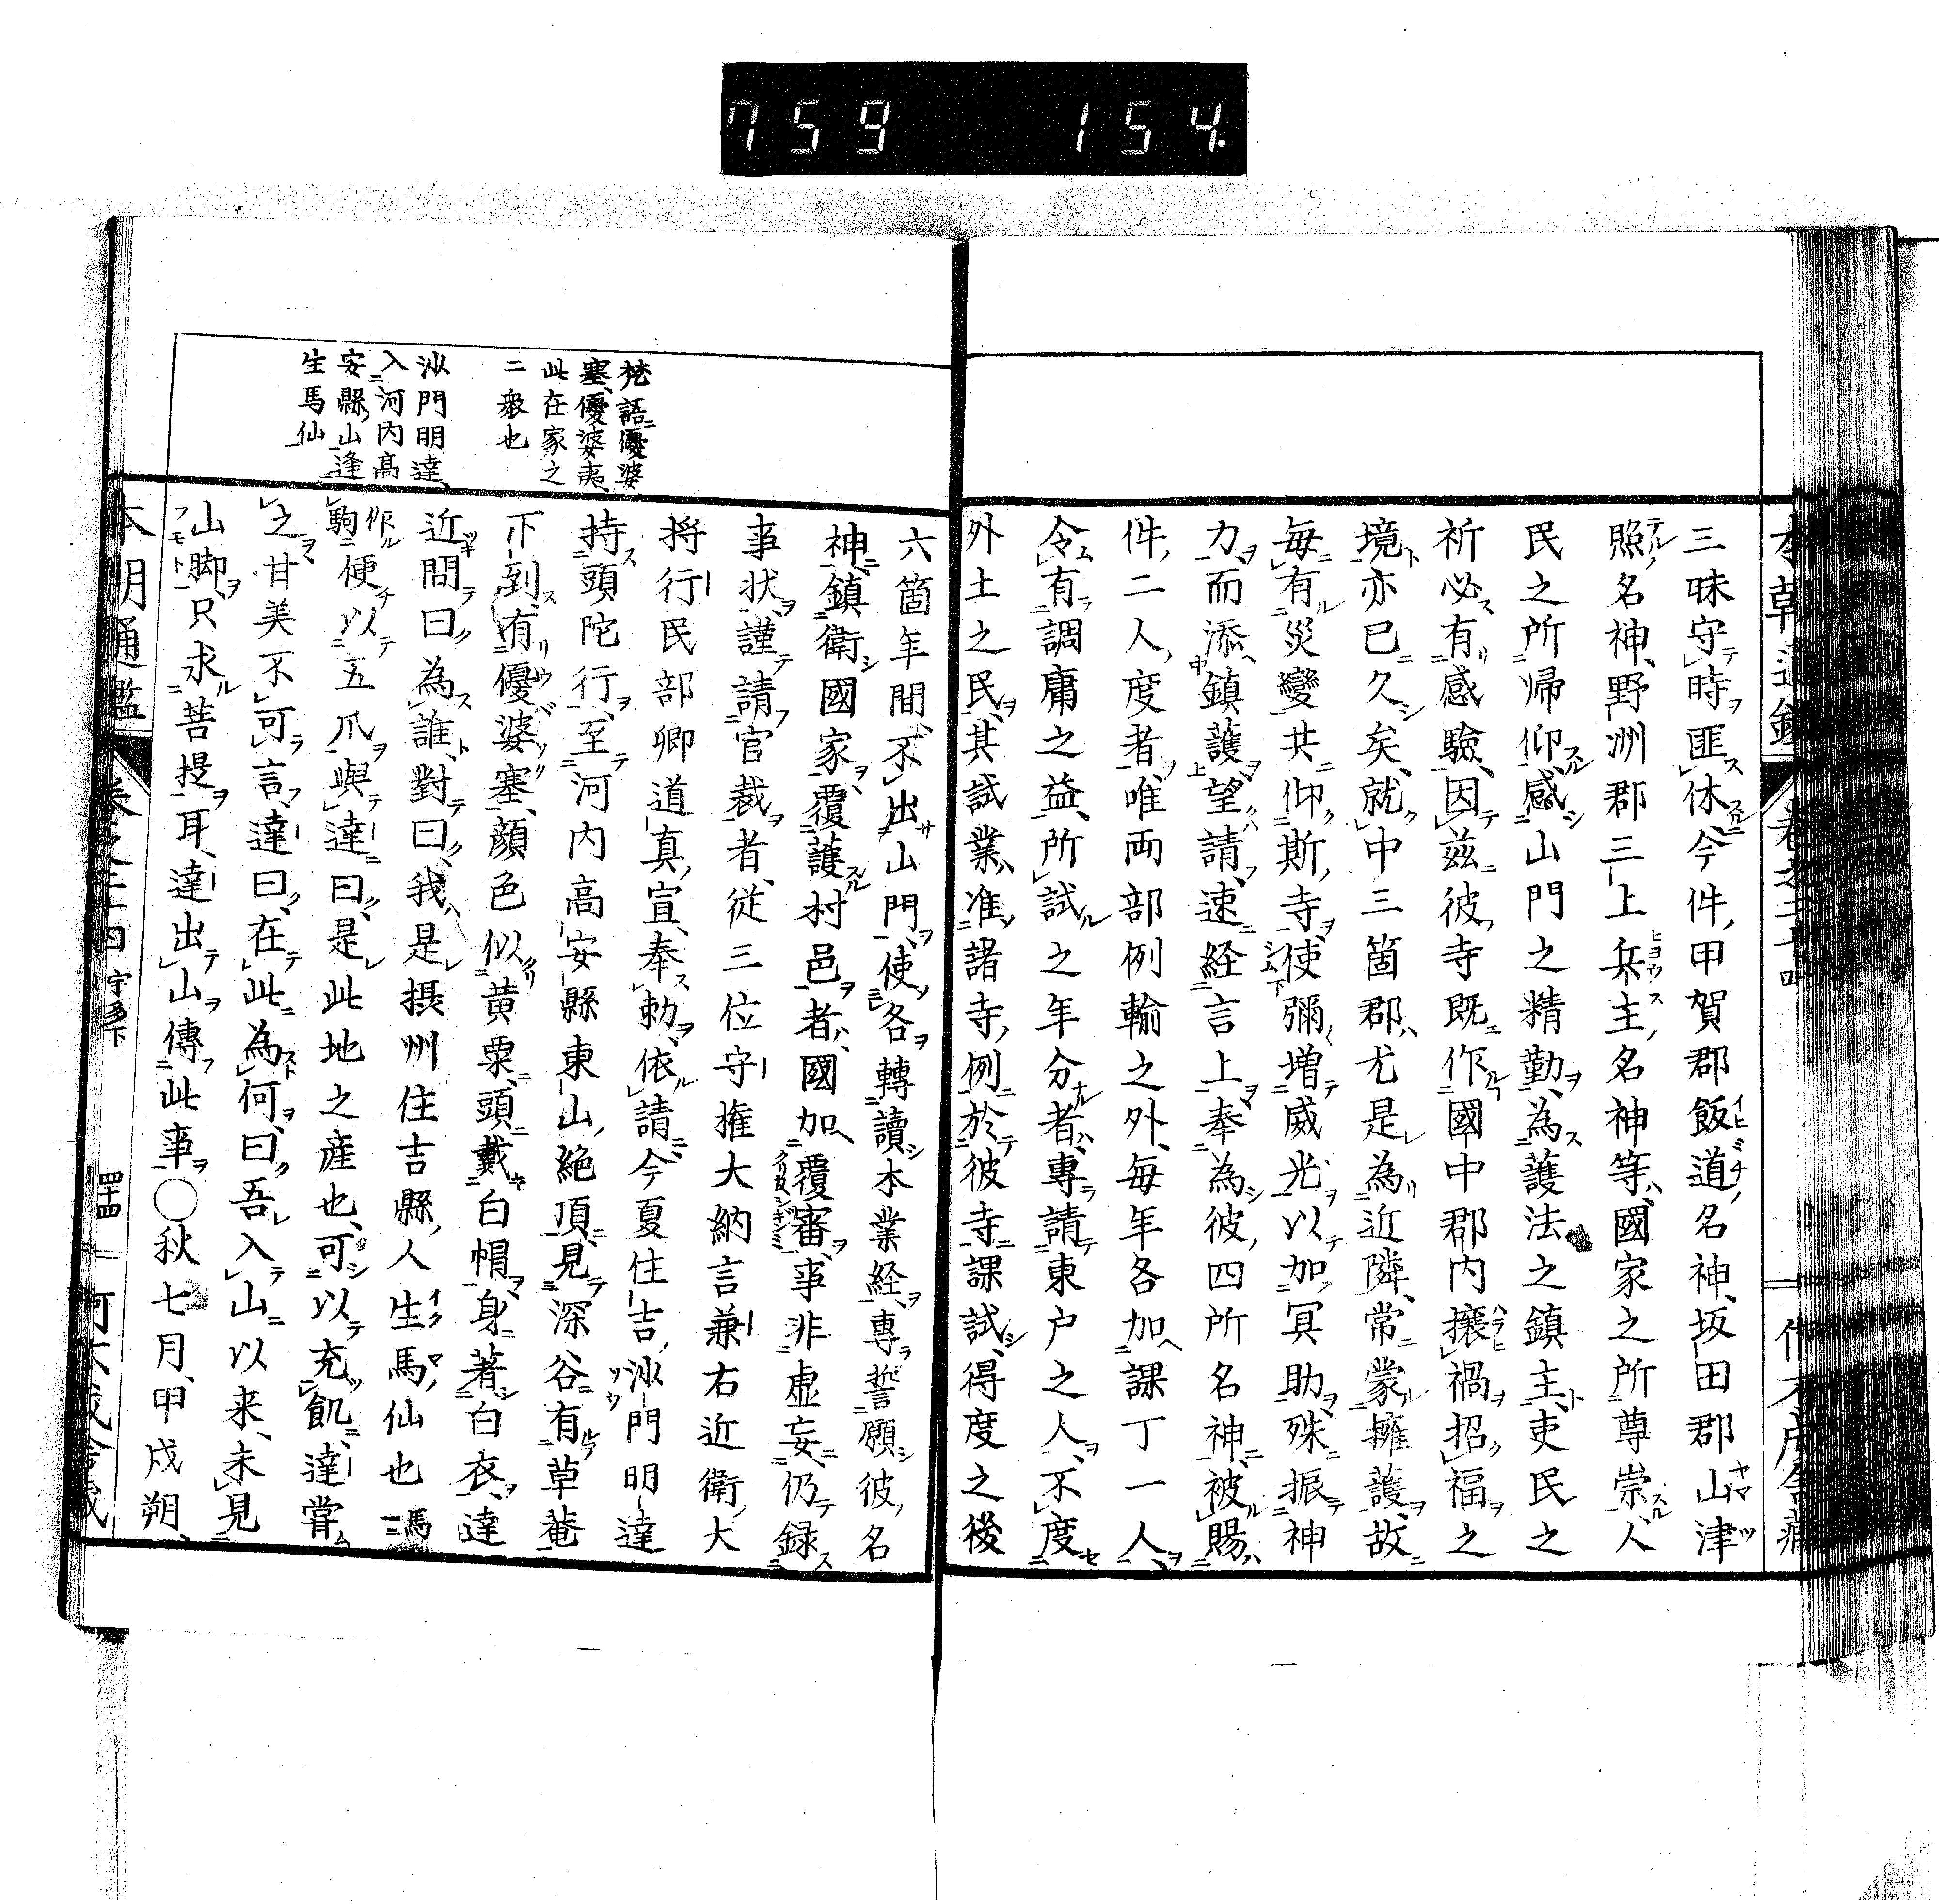 759 154.
三昧守時匪休今件甲賀郡飯道名神坂田郡山津
照名神野洲郡三上兵主名神等國家之所尊崇人
民之所帰仰感山門之精勤為護法之鎮主吏民之
祈必有感驗因茲彼寺既作國中郡内攘禍招福之
境亦已久矣就中三箇郡尤是為近隣常蒙擁護故
毎有災變共仰斯寺使彌増威光以加冥助殊振神
力而添鎮護望請速経言上奉為彼四所名神被賜
件二人度者唯両部例輸之外毎年各加課丁一人
令有調庸之益所試之年分者專請東户之人不度
外土之民其試業准諸寺例於彼寺課試得度之後
六箇年間不出山門使各轉讀本業経專誓願彼名
神鎮衛國家覆護村邑者國加覆審事非虚妄仍録
事状謹請官裁者従三位守権大納言兼右近衛大
将行民部卿道真宣奉勅依請今夏住吉沙門明達
持頭陀行至河内高安縣東山絶頂見深谷有草菴
下到有優婆塞顔色似黄粟頭戴白帽身著白衣達
近問曰為誰對曰我是摂州住吉縣人生馬仙也
駒便以五爪與達曰是此地之産也可以充飢達嘗
之甘美不可言達曰在此為何曰吾入山以来未見
山脚只求菩提耳達出山傳此事〇秋七月甲戌朔
梵語優婆
塞優婆夷
此在家之
二衆也
沙門明達
入河内高
安縣山逢
生馬仙
本朝通鑑 卷之二十四 宇多下 四十四